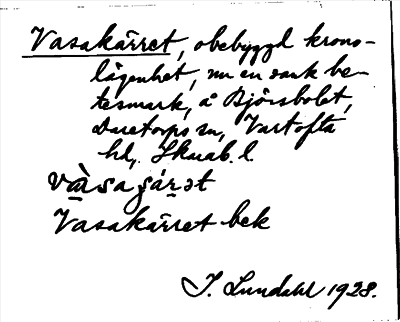 Vasakärret, obebyggd krono-
lägenhet, nu en sank be-
tesmark, å Björsbolet,
Daretorps sn, Vartofta
hd, Skarab. l.
và̱saʃár̲ət
Vasakärret bek
J. Lundahl 1928.